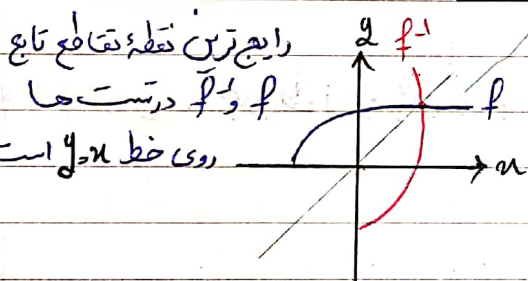 رایج‌ترین نقطهٔ تقاطع تابع
f و f⁻¹ در تست‌ها
روی خط y=x است
y
f⁻¹
f
x